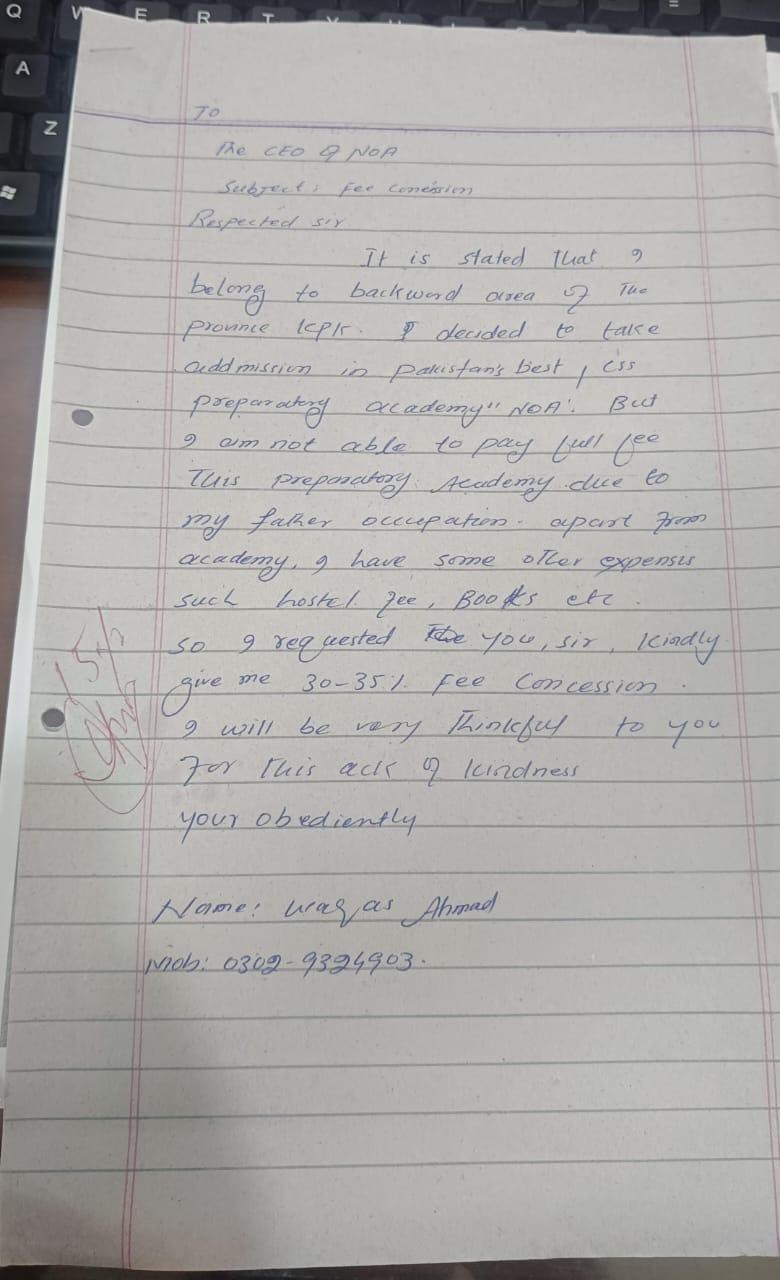 Q W E R T Y
A
Z
To
The CEO of NOA
Subject: Fee concession
Respected sir
It is stated that I
belong to backword area of The
province kpk. I decided to take
addmission in Pakistan's best, css
preparatory academy "NOA". But
I am not able to pay full fee
This preparatory Academy due to
my father occupation. apart from
academy, I have some other expensis
such hostel fee, Books etc.
so I requested you, sir, kindly
give me 30-35% Fee Concession.
I will be very Thinkful to you
For this ack of kindness
your obediently
Name: Waqas Ahmad
Mob: 0302-9324903.